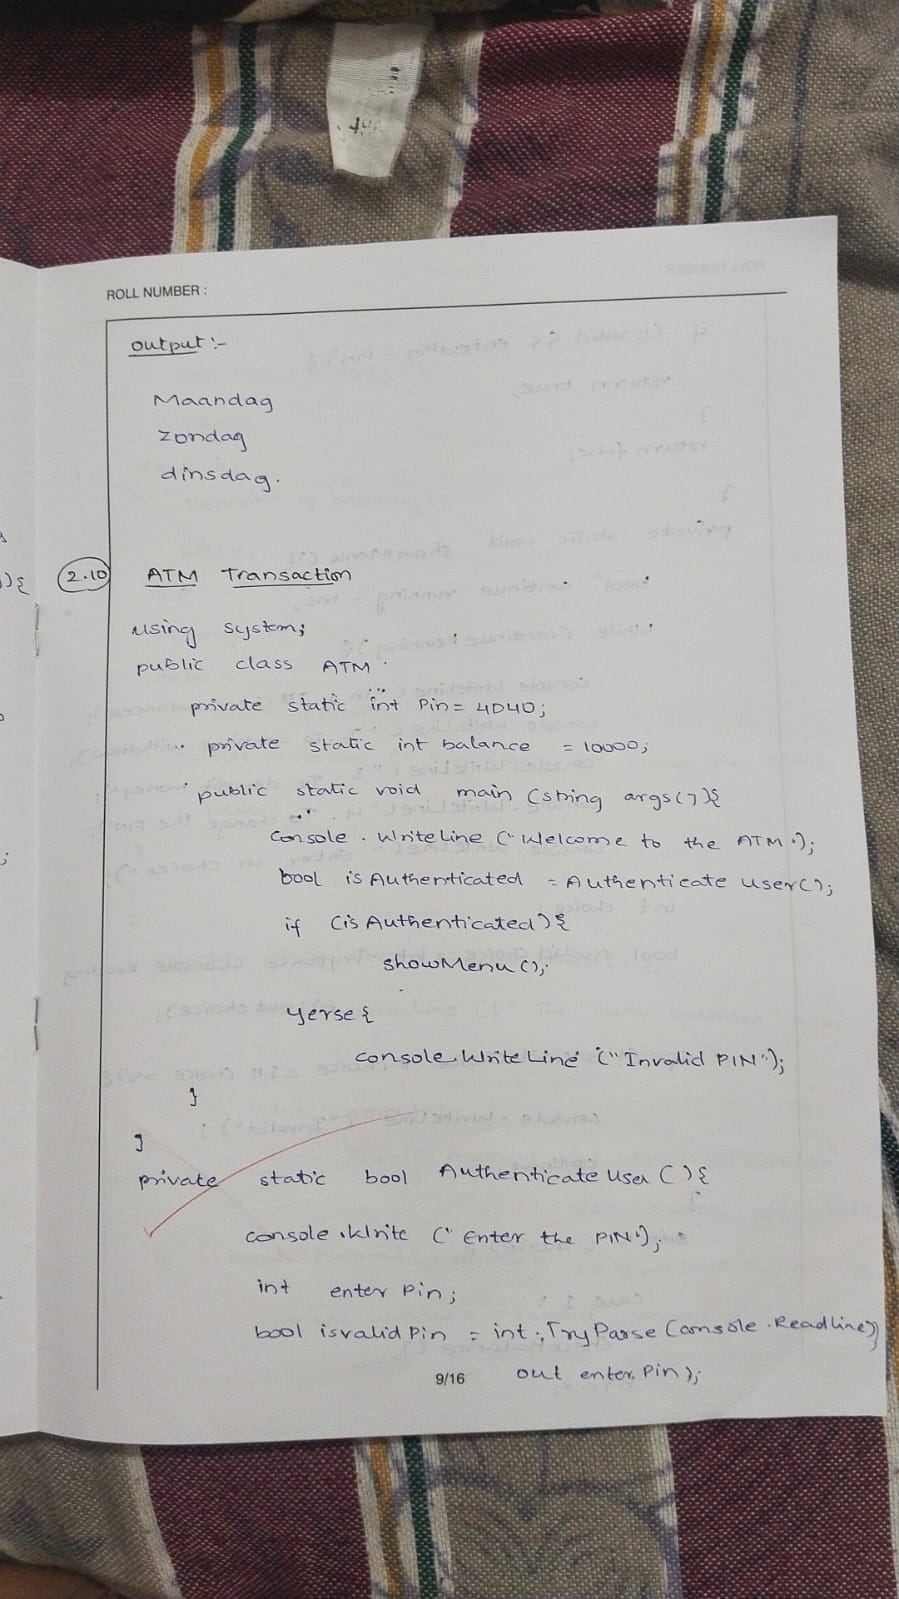 ROLL NUMBER :
output :-
Maandag
zondag
dinsdag.
2.10 ATM Transaction
using system;
public class ATM
private static int Pin = 4040;
private static int balance = 10000;
public static void main (string args[]){
Console . WriteLine ("Welcome to the ATM");
bool is Authenticated = Authenticate user();
if (is Authenticated){
showMenu ();
}else{
console.WriteLine ("Invalid PIN");
}
}
private static bool Authenticate user (){
console.Write ("Enter the PIN");
int enter Pin;
bool isvalid Pin = int.TryParse (console.Readline()
out enter Pin);
9/16